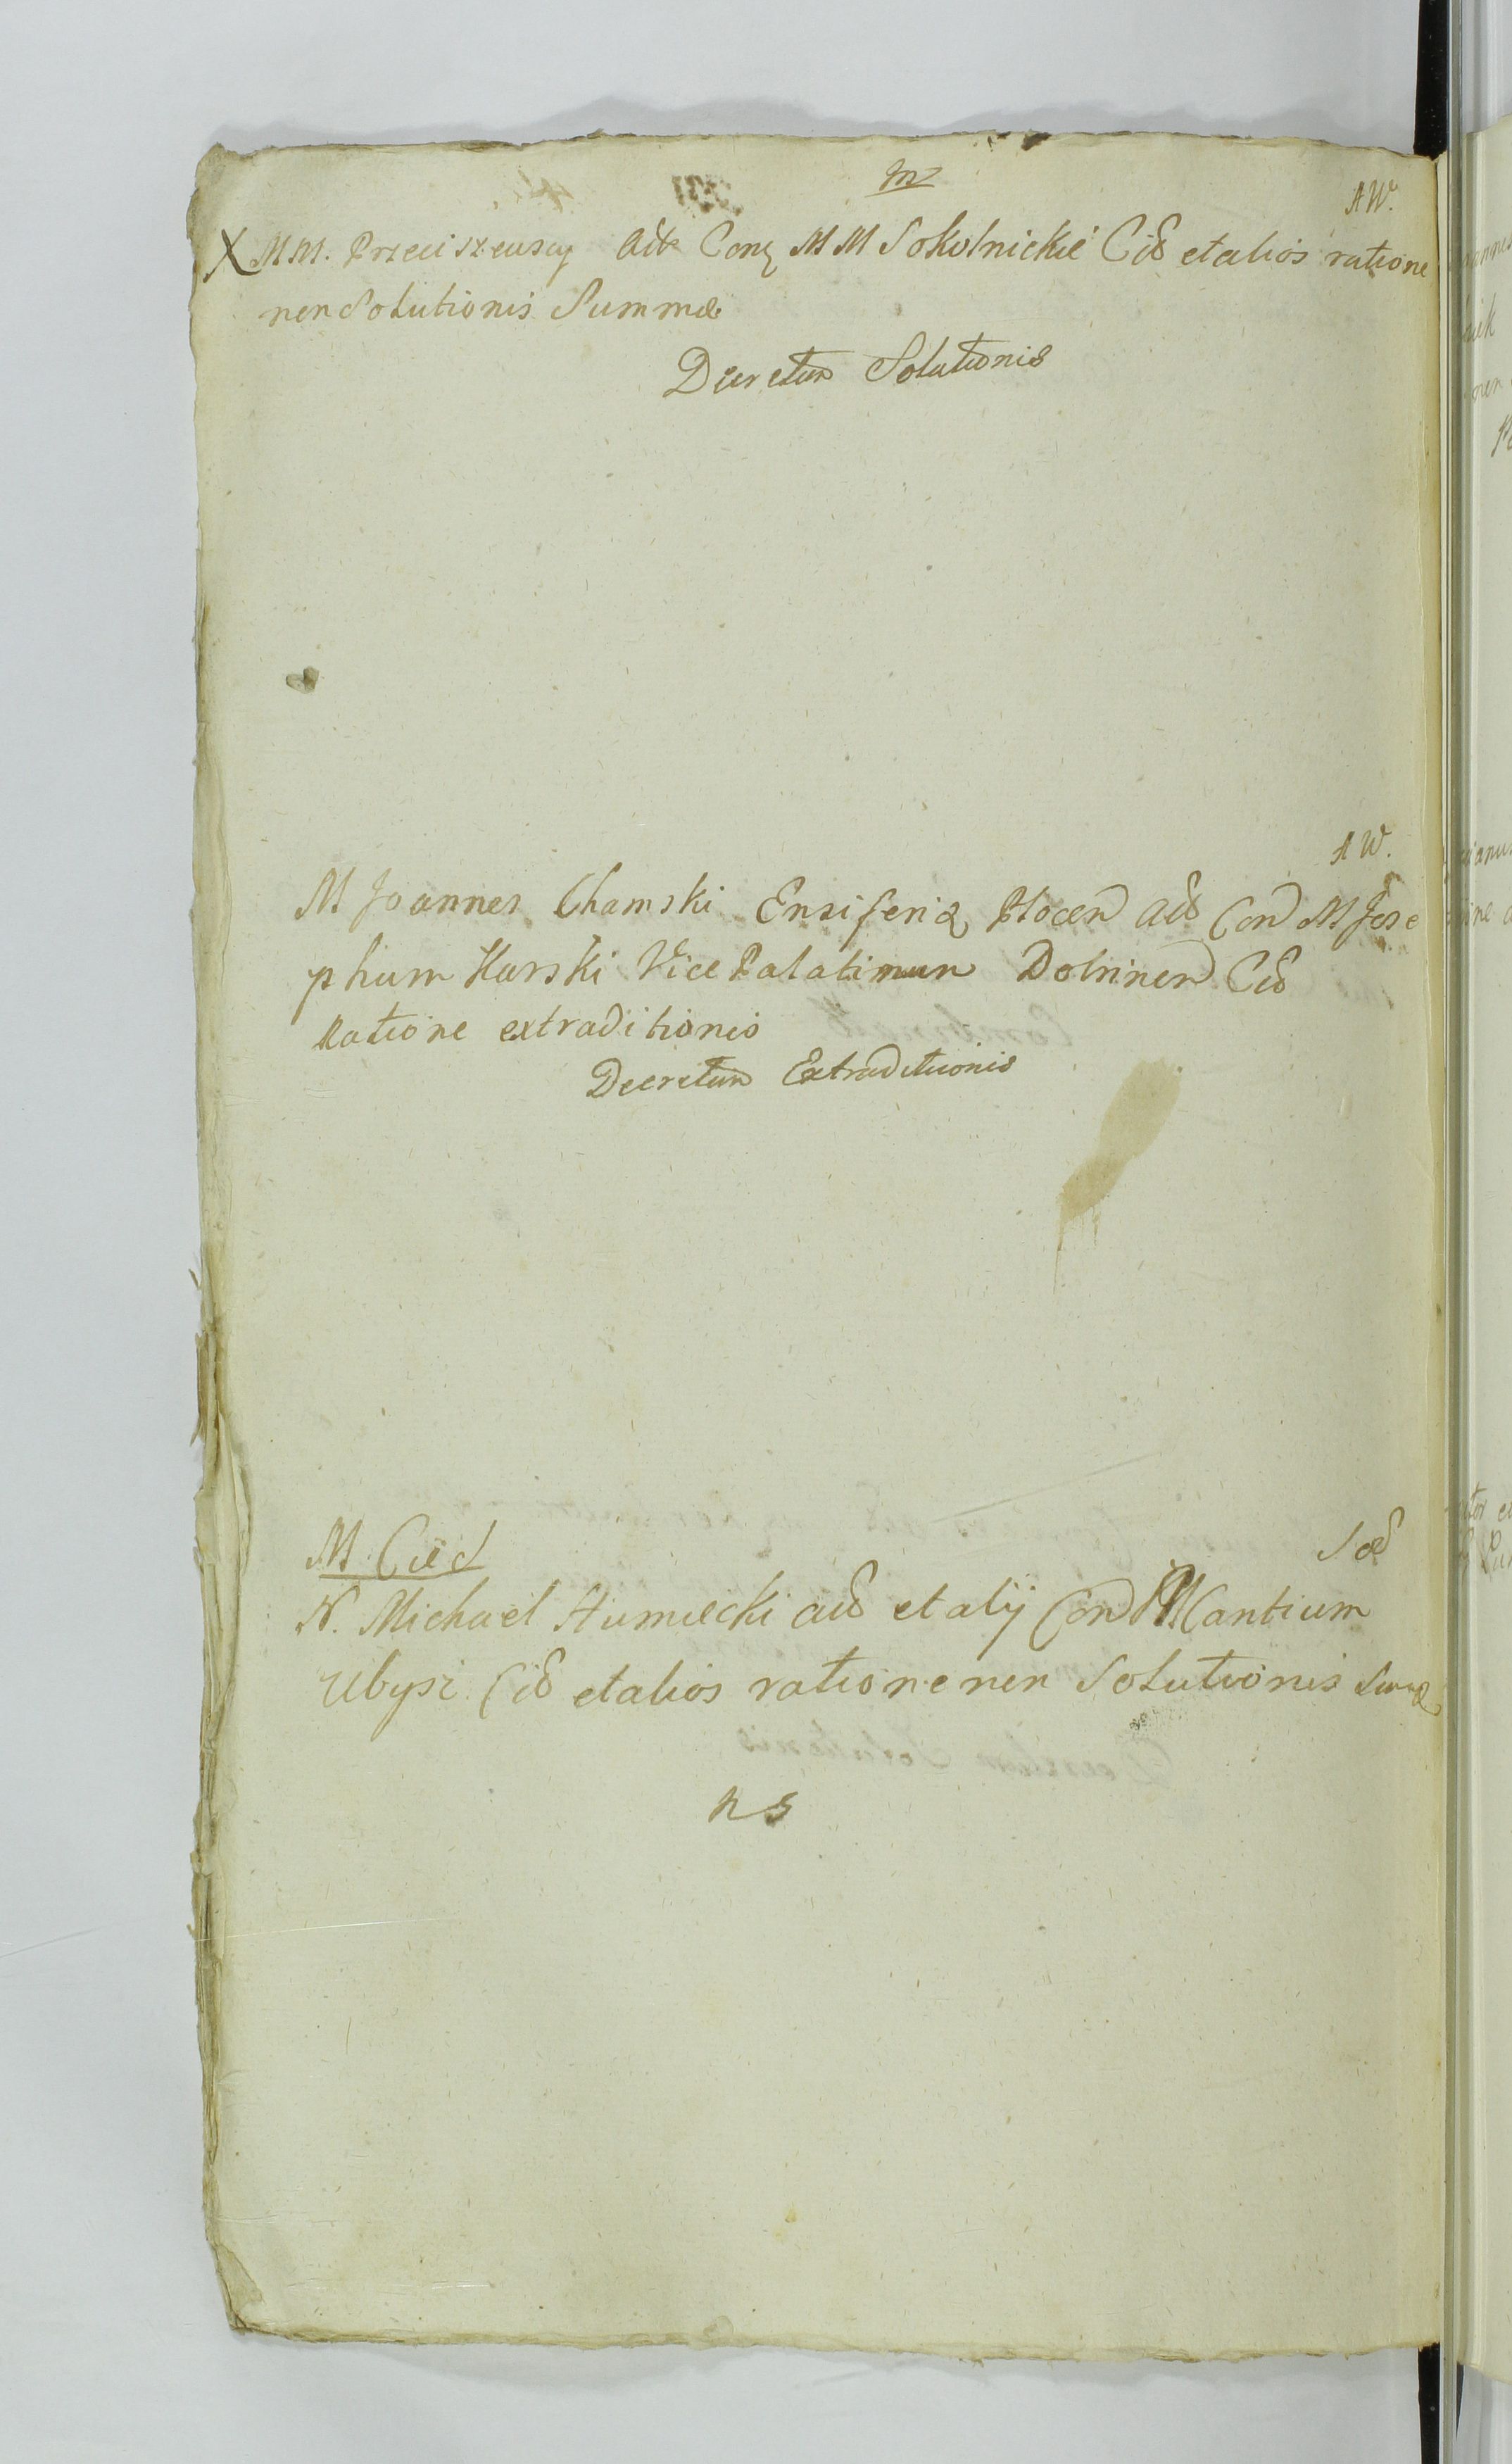 m
AW.
X MM. Przeciszewscy Act Conq MM Sokolnickie Cit et alios ratione
non Solutionis Summæ
Decretum Solutionis
AW.
M Joannes Chamski Ensiferiæ Plocen Act Con M Jose
phum Karski Vice Palatinum Dobrinen Cit
Ratione extraditionis
Decretum Extraditionis
M. Cied
N. Michael Humiecki act et alij Con M Cantium
Ubysz Cit et alios ratione non Solutionis Summæ
ns